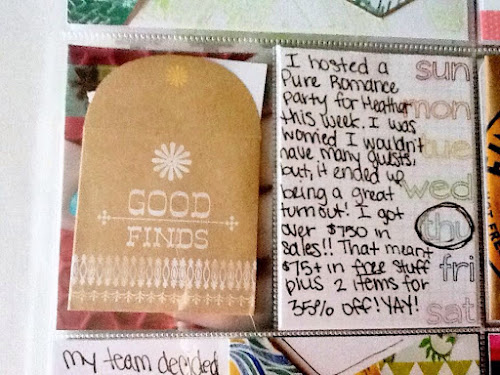 GOOD
FINDS
I hosted a
Pure Romance
party for Heather
this week. I was
worried I wouldn't
have many guests,
but, it ended up
being a great
turnout! I got
over $750 in
sales!! That meant
$75+ in free stuff
plus 2 items for
35% off! YAY!
sun
mon
tue
wed
thu
fri
sat
my team decided